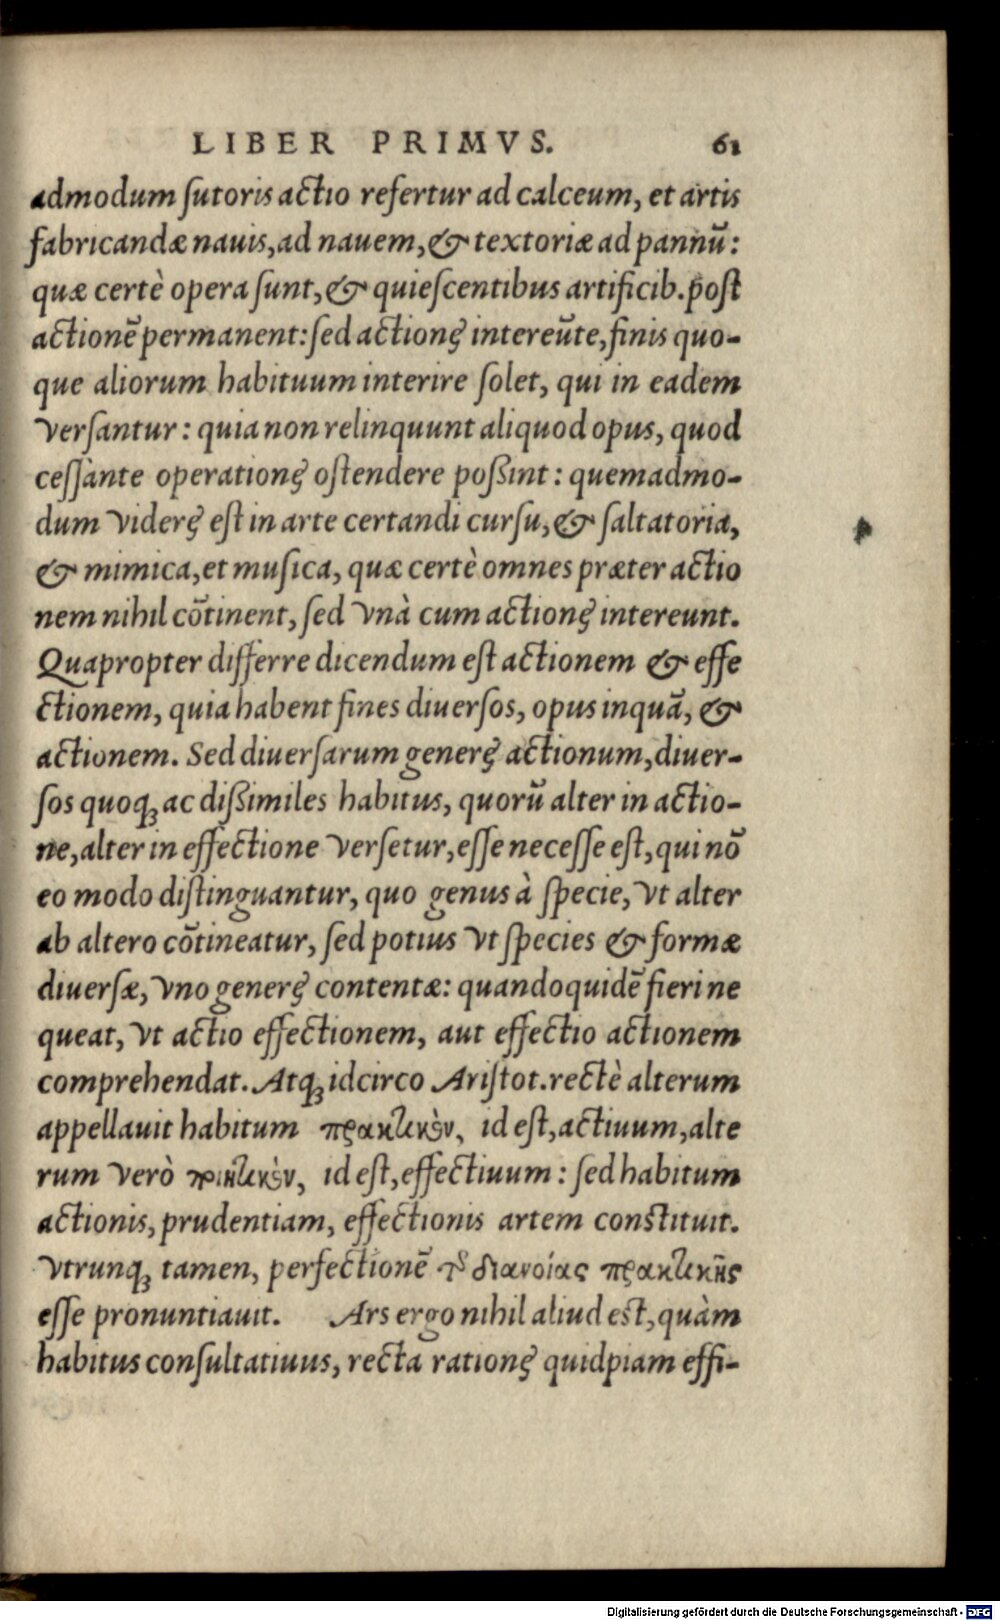 LIBER PRIMVS. 61
admodum ſutoris actio refertur ad calceum, et artis
fabricandæ nauis, ad nauem, & textoriæ ad pannū:
quæ certè opera ſunt, & quieſcentibus artificib. post
actionē permanent: ſed actionę intereūte, finis quo-
que aliorum habituum interire ſolet, qui in eadem
verſantur: quia non relinquunt aliquod opus, quod
ceſſante operationę oſtendere poßint: quemadmo-
dum viderę eſt in arte certandi curſu, & ſaltatoria,
& mimica, et muſica, quæ certè omnes præter actio
nem nihil cōtinent, ſed vnà cum actionę intereunt.
Quapropter differre dicendum eſt actionem & effe
ctionem, quia habent fines diuerſos, opus inquā, &
actionem. Sed diuerſarum generę actionum, diuer-
ſos quoq; ac dißimiles habitus, quorū alter in actio-
ne, alter in effectione verſetur, eſſe neceſſe eſt, qui nō
eo modo diſtinguantur, quo genus à ſpecie, vt alter
ab altero cōtineatur, ſed potius vt ſpecies & formæ
diuerſæ, vno generę contentæ: quandoquidē fieri ne
queat, vt actio effectionem, aut effectio actionem
comprehendat. Atq; idcirco Ariſtot. rectè alterum
appellauit habitum πρακτικὸν, id eſt, actiuum, alte
rum verò ποιητικὸν, id eſt, effectiuum: ſed habitum
actionis, prudentiam, effectionis artem constituit.
Vtrunq; tamen, perfectionē τῆς διανοίας πρακτικῆς
eſſe pronuntiauit. Ars ergo nihil aliud est, quàm
habitus conſultatiuus, recta rationę quidpiam effi-
Digitalisierung gefördert durch die Deutsche Forschungsgemeinschaft - DFG